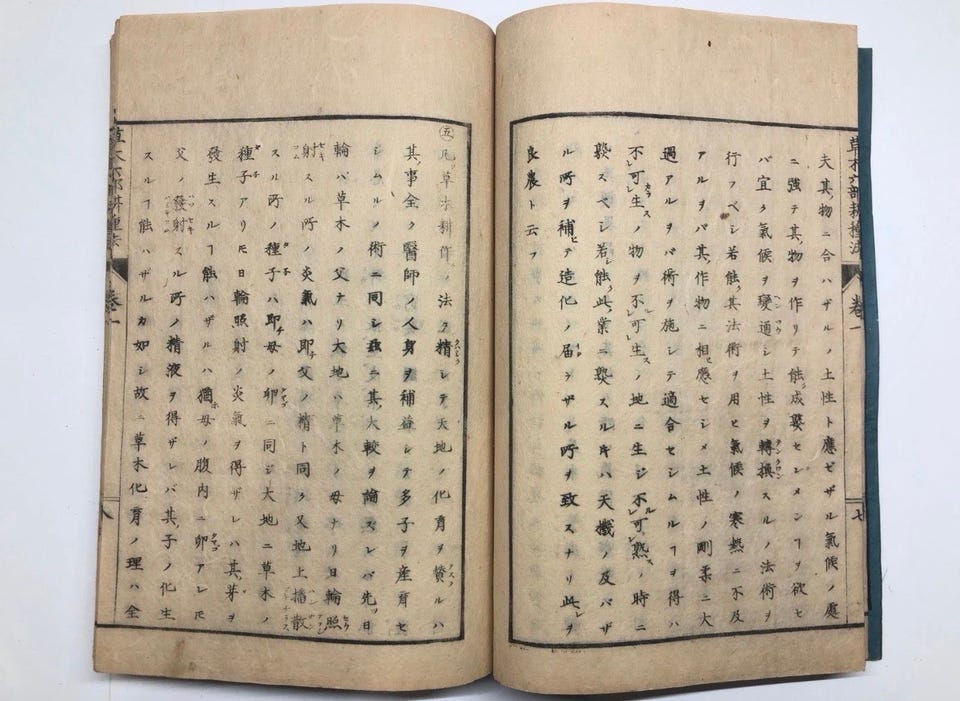 草木六部耕種法 卷一 七
夫其物ニ合ハザルノ土性ト應ゼザル氣候ノ處
ニ強テ其物ヲ作リテ能成熟セシメンヿヲ欲セ
バ宜ク氣候ヲ變通シ土性ヲ轉換スルノ法術ヲ
行フベシ若能其法術ヲ用ヒ氣候ノ寒熱ニ不及
アルヲバ其作物ニ相應セシメ土性ノ剛柔ニ大
過アルヲバ術ヲ施シテ適合セシムルヿヲ得ハ
不可生ノ物ヲ不可生ノ地ニ生ジ不可熟ノ時ニ
熟スベシ若能此業ニ熟スルキハ天機ノ及バザ
ル所ヲ補ヒテ造化ノ届ラザル所ヲ致スナリ此ヲ
良農ト云フ
㊄凡ソ草木耕作ノ法ク精シテ天地ノ化育ヲ贊ルハ
其事全ク醫師ノ人身ヲ補益シテ多子ヲ産育セ
シムルノ術ニ同シ茲ニ其大較ヲ論スレバ先ツ日
輪ハ草木ノ父ナリ大地ハ草木ノ母ナリ日輪照
射スル所ノ炎氣ハ即チ父ノ精ト同ク又地上播散
スル所ノ種子ハ即チ母ノ卵ニ同ジ大地ニ草木ノ
種子アリ𪜈日輪照射ノ炎氣ヲ得ザレハ其芽ヲ
發生スルヿ能ハザルハ猶母ノ腹内ニ卵アレ𪜈
父ノ發射スル所ノ精液ヲ得ザレバ其子ノ化生
スルヿ能ハザルカ如シ故ニ草木化育ノ理ハ全
草木六部耕種法 卷一